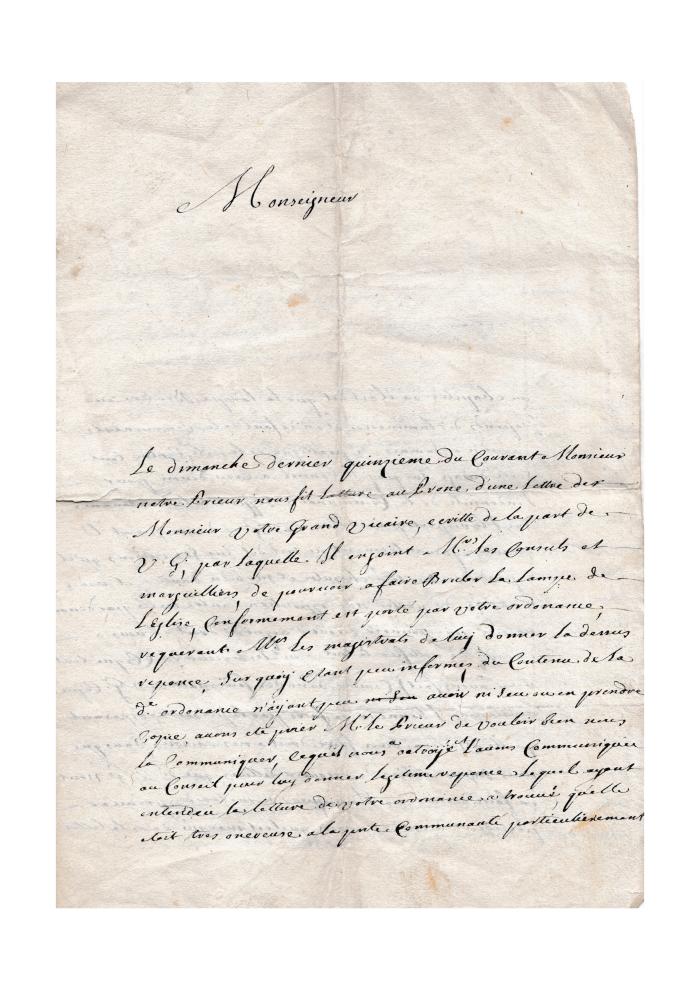 Monseigneur
Le dimanche dernier quinzieme du Courant Monsieur
notre Prieur nous fit Letture au Prone, d'une lettre de
Monsieur votre Grand Vicaire, ecritte de la part de
V G; par laquelle. Il enjoint a Mrs les Consuls et
marguilliers, de pourvoir a faire Bruler La lampe de
L'Eglise, Conformement est porté par votre ordonance,
requerant Mrs les magistrats de luy donner la dessus
reponce, Sur quoy Etant peu informes du Contenu de la
de ordonance n'ayant peu ni Seu avoir ni Seu ou en prendre
Copie, avons eté prier Mr le Prieur de vouloir bien nous
la Communiquer, lequel nous a octroyé et l'avons Communiquée
au Conseil pour luy donner legitime reponce Lequel ayant
entendeu la letture de votre ordonance a trouvé, qu'elle
etoit tres onereuse a la pnte Communauté particulierement